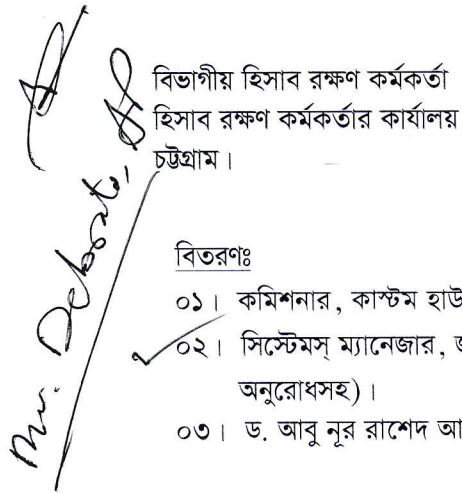 বিভাগীয় হিসাব রক্ষণ কর্মকর্তা
হিসাব রক্ষণ কর্মকর্তার কার্যালয়
চট্টগ্রাম।
বিতরণঃ
০১। কমিশনার, কাস্টম হাউ
০২। সিস্টেমস্ ম্যানেজার, জ
অনুরোধসহ)।
০৩। ড. আবু নূর রাশেদ আ
Mr.